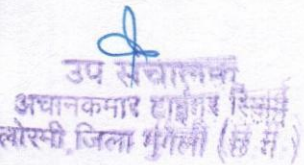 उप संचालक
अचानकमार टाईगर रिजर्व
लोरमी, जिला मुंगेली (छ.ग.)